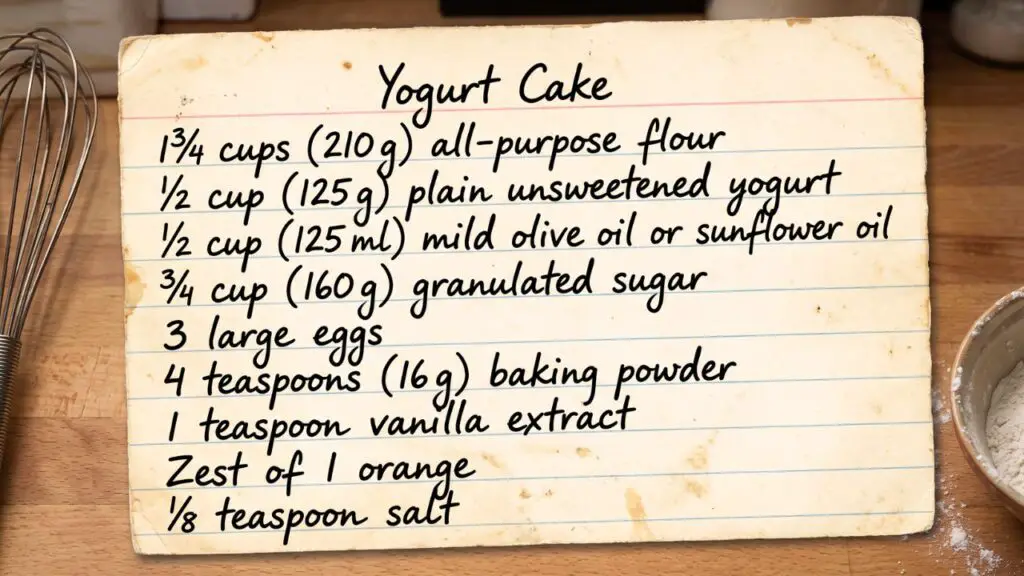 Yogurt Cake
1¾ cups (210 g) all-purpose flour
½ cup (125 g) plain unsweetened yogurt
½ cup (125 ml) mild olive oil or sunflower oil
¾ cup (160 g) granulated sugar
3 large eggs
4 teaspoons (16 g) baking powder
1 teaspoon vanilla extract
Zest of 1 orange
⅛ teaspoon salt